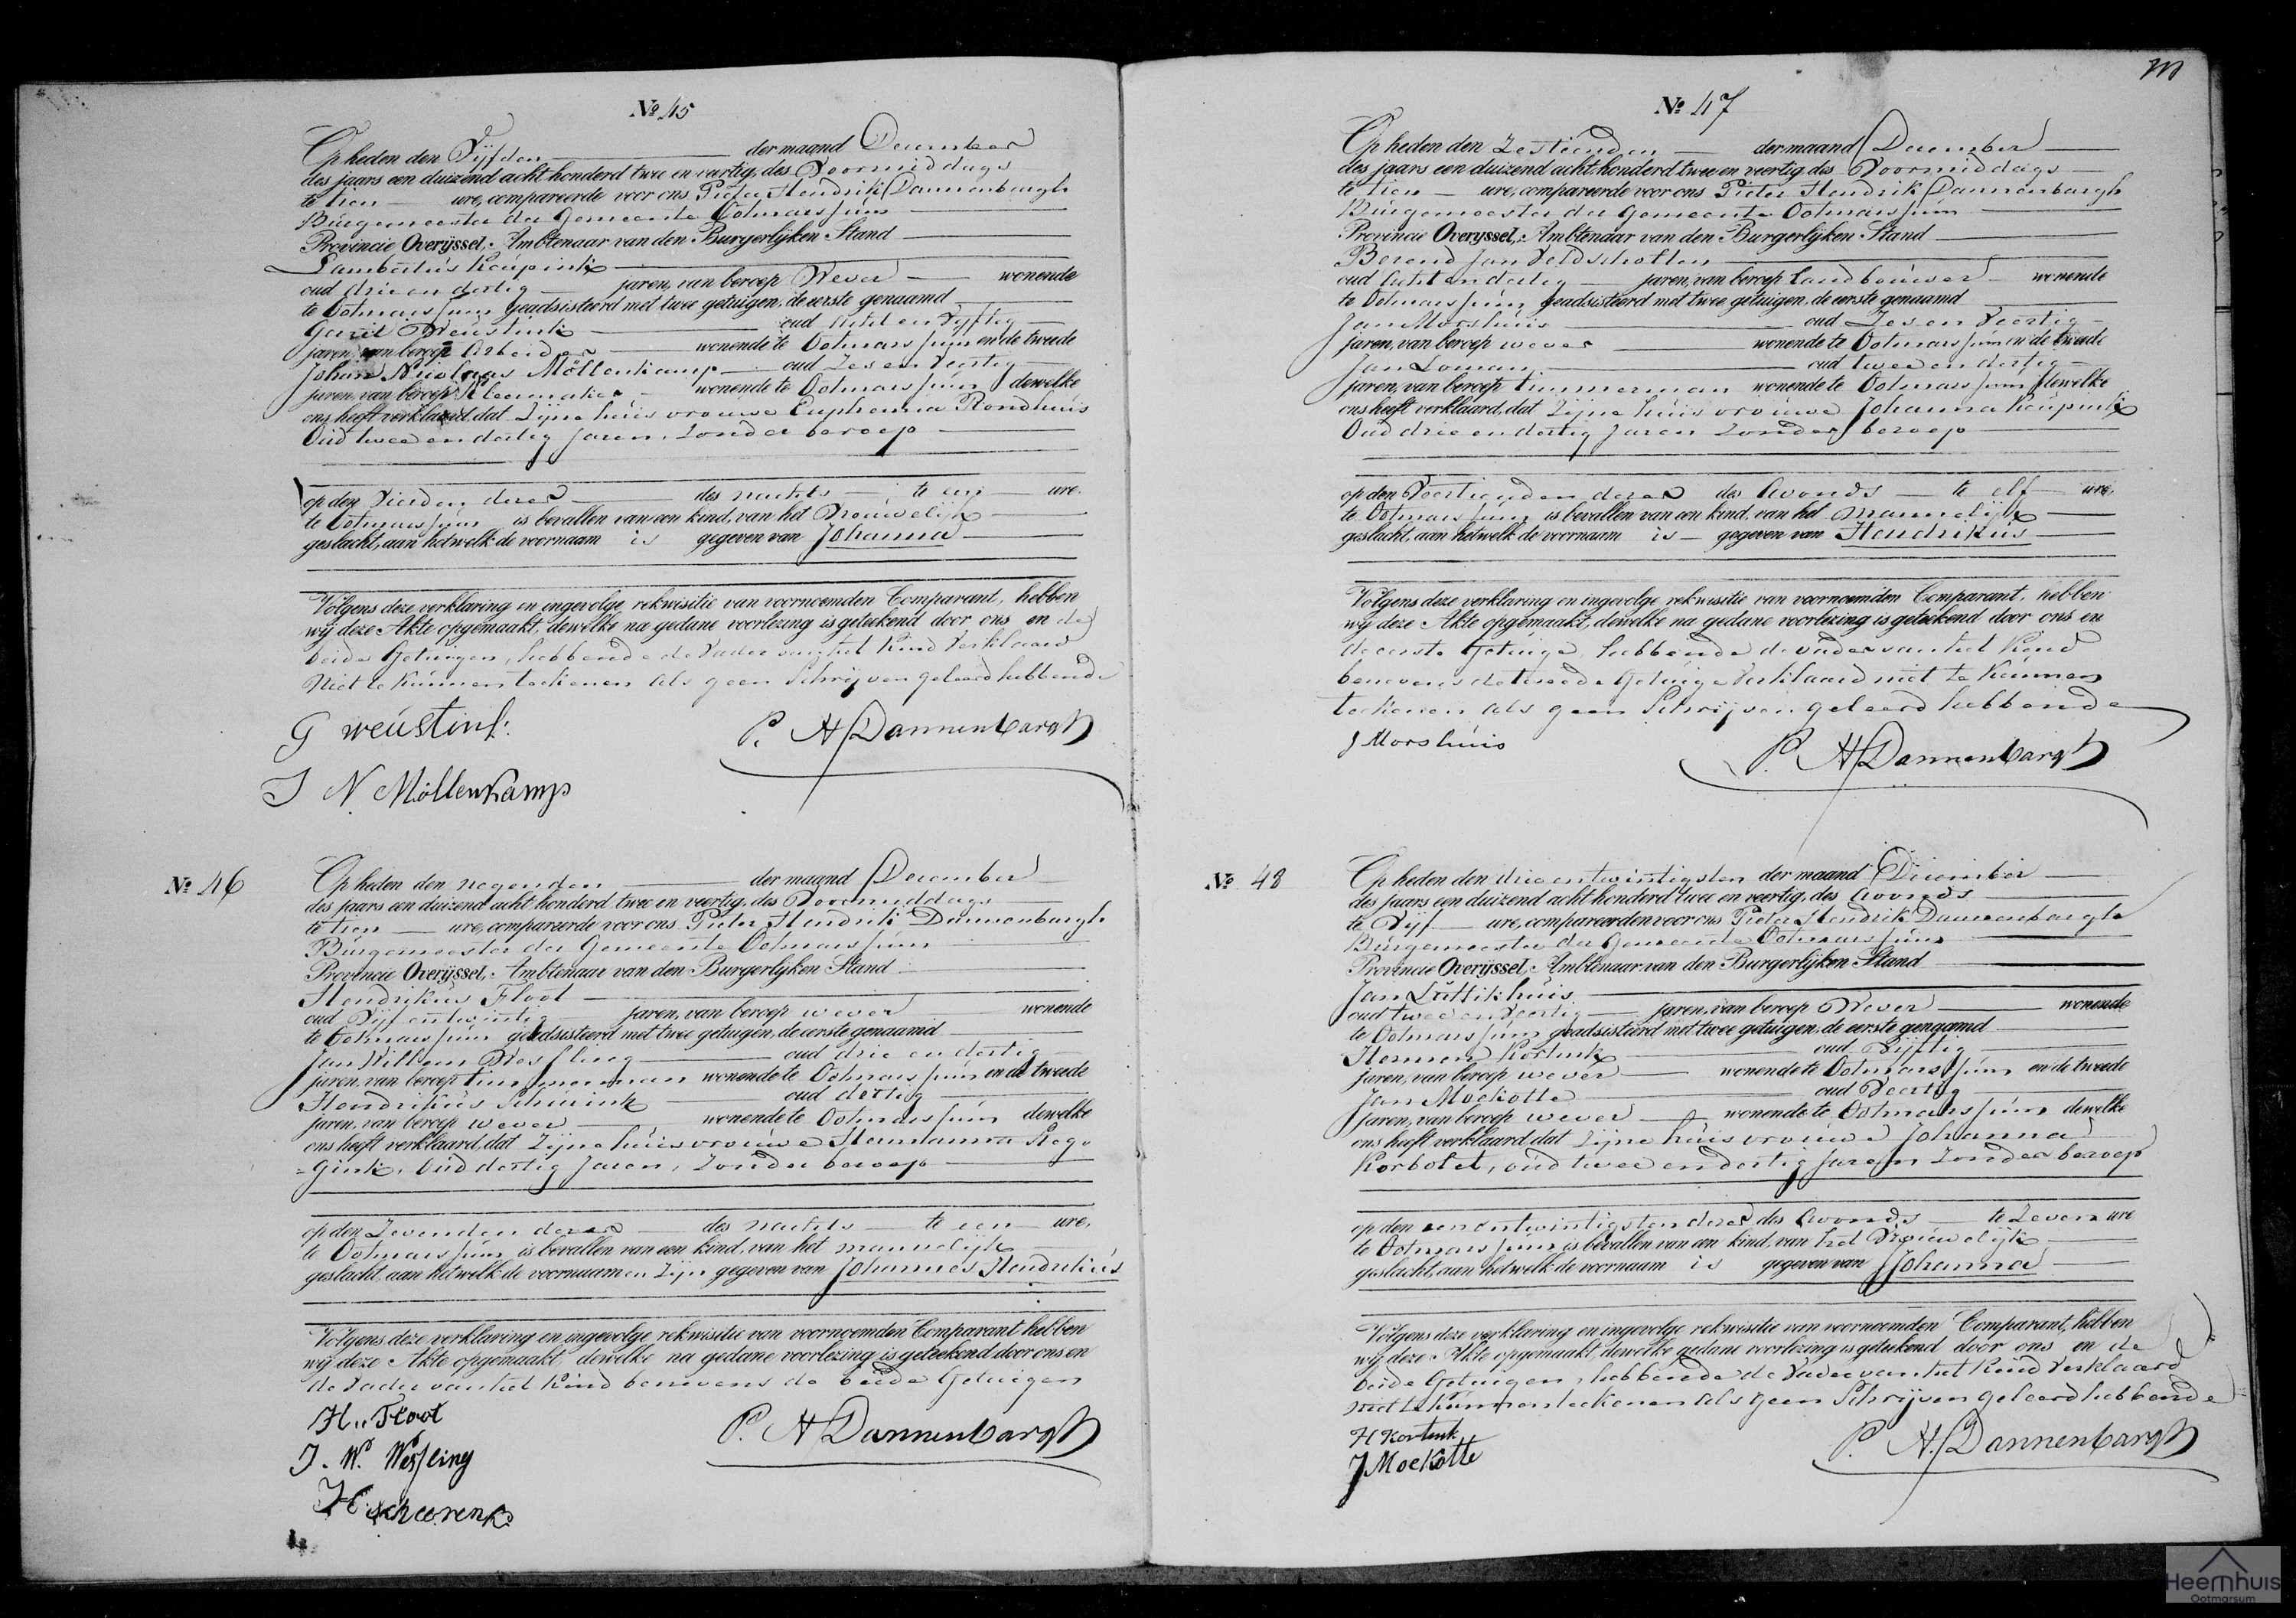 № 45
Op heden den Vijfden der maand December
des jaars een duizend acht honderd twee en veertig, des Voormiddags
te tien ure, compareerde voor ons Pieter Hendrik Dannenbargh
Burgemeester der Gemeente Ootmarssum
Provincie Overijssel, Ambtenaar van den Burgerlijken Stand
Lambertus Keupink
oud drie en dertig jaren, van beroep Wever wonende
te Ootmarssum geadsisteerd met twee getuigen, de eerste genaamd
Gerrit Weustink oud acht en Vyftig
jaren, van beroep Arbeider wonende te Ootmarssum en de tweede
Johan Nicolaas Möllenkamp oud Zes en Veertig
jaren, van beroep Kleermaker wonende te Ootmarssum dewelke
ons heeft verklaard dat Zijne huisvrouwe Euphemia Rondhuis
Oud twee en dertig Jaren, Zonder beroep
op den Vierden dezer des nachts te een ure.
te Ootmarssum is bevallen van een kind, van het Vrouwelijk
geslacht, aan hetwelk de voornaam is gegeven van Johanna
Volgens deze verklaring en ingevolge rekwisitie van voornoemden Comparant, hebben
wij deze Akte opgemaakt, dewelke na gedane voorlezing is geteekend door ons en de
beide Getuigen, hebbende de Vader van het Kind Verklaard
Niet te Kunnen teekenen als geen Schrijven geleerd hebbende
G weustink P. H Dannenbargh
J N Möllenkamp
№ 46
Op heden den negenden der maand December
des jaars een duizend acht honderd twee en veertig, des Voormiddags
te tien ure, compareerde voor ons Pieter Hendrik Dannenbargh
Burgemeester der Gemeente Ootmarssum
Provincie Overijssel, Ambtenaar van den Burgerlijken Stand
Hendrikus Floot
oud Vijf entwintig jaren, van beroep wever wonende
te Ootmarssum geadsisteerd met twee getuigen, de eerste genaamd
Jan Willem Wesfling oud drie en dertig
jaren, van beroep timmerman wonende te Ootmarssum en de tweede
Hendrikus Schurink oud dertig
jaren, van beroep wever wonende te Ootmarssum dewelke
ons heeft verklaard, dat Zijne huisvrouwe Hermanna Reg-
=gink, Oud dertig Jaren, Zonder beroep
op den Zevenden dezer des nachts te een ure.
te Ootmarssum is bevallen van een kind, van het mannelijk
geslacht, aan hetwelk de voornaamen Zijn gegeven van Johannes Hendrikus
Volgens deze verklaring en ingevolge rekwisitie van voornoemden Comparant hebben
wij deze Akte opgemaakt, dewelke na gedane voorlezing is geteekend door ons en
de Vader van het Kind benevens de beide Getuigen
H. Floot P. H Dannenbargh
J. W. Wesfling
H
№ 47
Op heden den Zestienden der maand December
des jaars een duizend acht honderd twee en veertig des Voormiddags
te tien ure, compareerde voor ons Pieter Hendrik Dannenbargh
Burgemeester der Gemeente Ootmarssum
Provincie Overyssel, Ambtenaar van den Burgerlijken Stand
Berend Jan Veldscholten
oud acht en dertig jaren, van beroep Landbouwer wonende
te Ootmarssum geadsisteerd met twee getuigen, de eerste genaamd
Jan Morshuis oud Zes en Veertig
jaren, van beroep wever wonende te Ootmarssum en de tweede
Jan Loman oud twee en dertig
jaren, van beroep timmerman wonende te Ootmarssum dewelke
ons heeft verklaard, dat Zijne huisvrouwe Johanna Keupink
Oud drie en dertig Jaren Zonder beroep
op den Veertienden dezer des Avonds te elf ure.
te Ootmarssum is bevallen van een kind, van het mannelijk
geslacht, aan hetwelk de voornaam is gegeven van Hendrikus
Volgens deze verklaring en ingevolge rekwisitie van voornoemden Comparant, hebben
wij deze Akte opgemaakt, dewelke na gedane voorlezing is geteekend door ons en
de eerste Getuige, hebbende de Vader van het Kind
benevens de tweede Getuige Verklaard niet te Kunnen
teekenen als geen Schrijven geleerd hebbende
J Morshuis P. H Dannenbargh
№ 48
Op heden den drie entwintigsten der maand December
des jaars een duizend acht honderd twee en veertig, des Avonds
te Vijf ure, compareerden voor ons Pieter Hendrik Dannenbargh
Burgemeester der Gemeente Ootmarssum
Provincie Overijssel, Ambtenaar van den Burgerlijken Stand
Jan Luttikhuis
oud twee en Veertig jaren, van beroep Wever wonende
te Ootmarssum geadsisteerd met twee getuigen, de eerste genaamd
Hermen Kortink oud Vijftig
jaren, van beroep wever wonende te Ootmarssum en de tweede
Jan Mockotte oud Veertig
jaren, van beroep wever wonende te Ootmarssum dewelke
ons heeft verklaard, dat Zijne huisvrouwe Johanna
Korbolet, oud twee en dertig Jaren Zonder beroep
op den een entwintigsten dezer des Avonds te Zeven ure
te Ootmarssum is bevallen van een kind, van het Vrouwelijk
geslacht, aan hetwelk de voornaam is gegeven van Johanna
Volgens deze verklaring en ingevolge rekwisitie van voornoemden Comparant, hebben
wij deze Akte opgemaakt, dewelke gedane voorlezing is geteekend door ons en de
beide Getuigen, hebbende de Vader van het Kind Verklaard
niet te Kunnen teekenen als geen Schrijven geleerd hebbende
H Kortink P. H. Dannenbargh
J Mockotte
Heemhuis
Ootmarsum